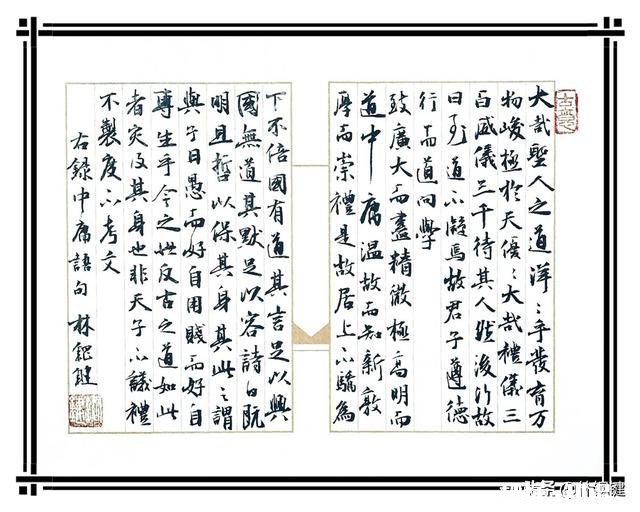 大哉聖人之道洋〻乎發育万
物峻極於天優〻大哉禮儀三
百威儀三千待其人然後行故
曰至道不凝焉故君子遵德
行而道问學
致廣大而盡精微極高明而
道中庸温故而知新敦
厚而崇禮是故居上不驕為
下不倍國有道其言足以興
國無道其默足以容詩曰既
明且哲以保其身其此之謂
與子曰愚而好自用賤而好自
專生乎今之世反古之道如此
者灾及其身也非天子不議禮
不製度不考文
右錄中庸語句 林